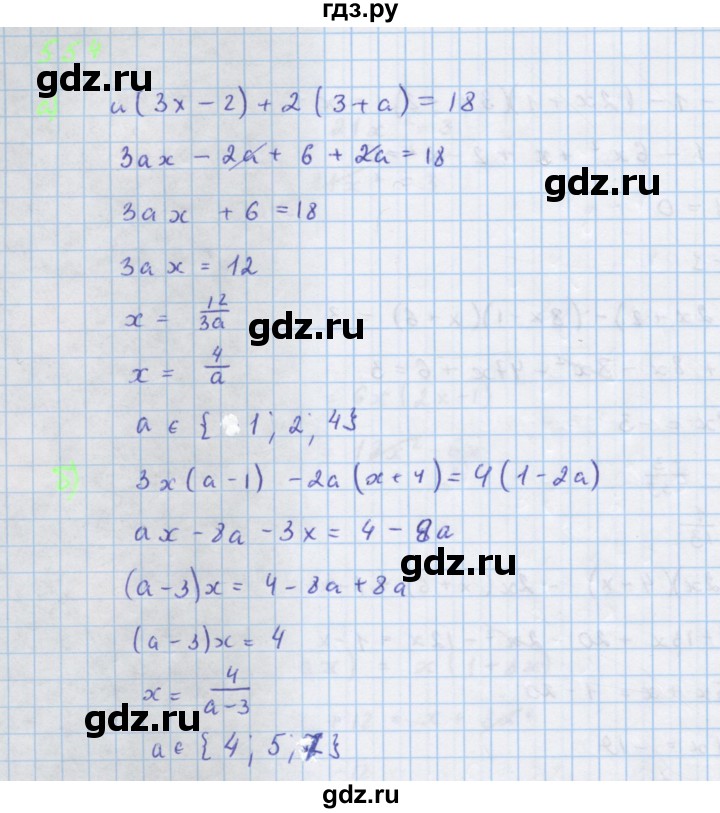 гдз.ру
557
gdz.ru
a) a(3x - 2) + 2(3 + a) = 18
3ax - 2a + 6 + 2a = 18
gdz.ru
3ax + 6 = 18
3ax = 12
x = 12/3a
gdz.ru
x = 4/a
a ∈ {1; 2; 4}
б) 3x(a - 1) - 2a(x + 4) = 4(1 - 2a)
ax - 8a - 3x = 4 - 8a
gdz.ru
(a - 3)x = 4 - 8a + 8a
(a - 3)x = 4
x = 4/a-3
gdz.ru
a ∈ {4; 5; 7}
gdz.ru